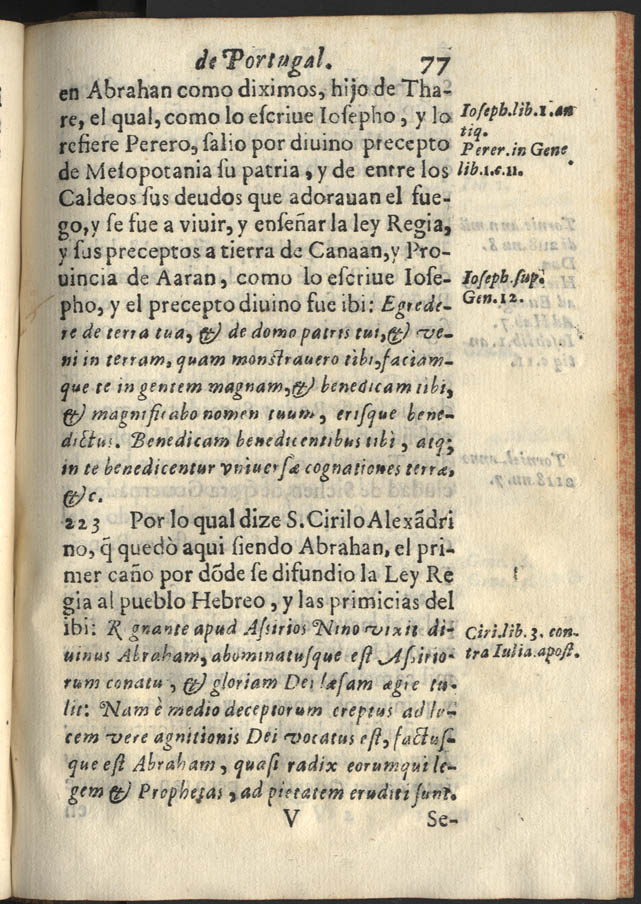 de Portugal. 77
en Abrahan como diximos, hijo de Tha-
re, el qual, como lo escriue Iosepho, y lo
refiere Perero, salio por diuino precepto
de Mesopotania su patria, y de entre los
Caldeos sus deudos que adorauan el fue-
go, y se fue a viuir, y enseñar la ley Regia,
y sus preceptos a tierra de Canaan, y Pro-
uincia de Aaran, como lo escriue Iose-
pho, y el precepto diuino fue ibi: Egrede-
re de terra tua, & de domo patris tui, & ve-
ni in terram, quam monstrauero tibi, faciam-
que te in gentem magnam, & benedicam tibi,
& magnificabo nomen tuum, erisque bene-
dictus. Benedicam benedicentibus tibi, atq;
in te benedicentur vniuersæ cognationes terræ,
&c.
223 Por lo qual dize S. Cirilo Alexãdri
no, q̃ quedò aqui siendo Abrahan, el pri-
mer caño por dõde se difundio la Ley Re
gia al pueblo Hebreo, y las primicias del
ibi: R gnante apud Assirios Nino vixit di-
uinus Abraham, abominatusque est Assirio-
rum conatu, & gloriam Dei læsam ægre tu-
lit: Nam è medio deceptorum ereptus ad lu-
cem vere agnitionis Dei vocatus est, factus-
que est Abraham, quasi radix eorumqui le-
gem & Prophetas, ad pietatem eruditi sunt.
V Se-
Ioseph. lib. 1. an
tiq.
Perer. in Gene
lib. 1. c. 11.
Ioseph. sup.
Gen. 12.
Ciri. lib. 3. con-
tra Iulia. apost.